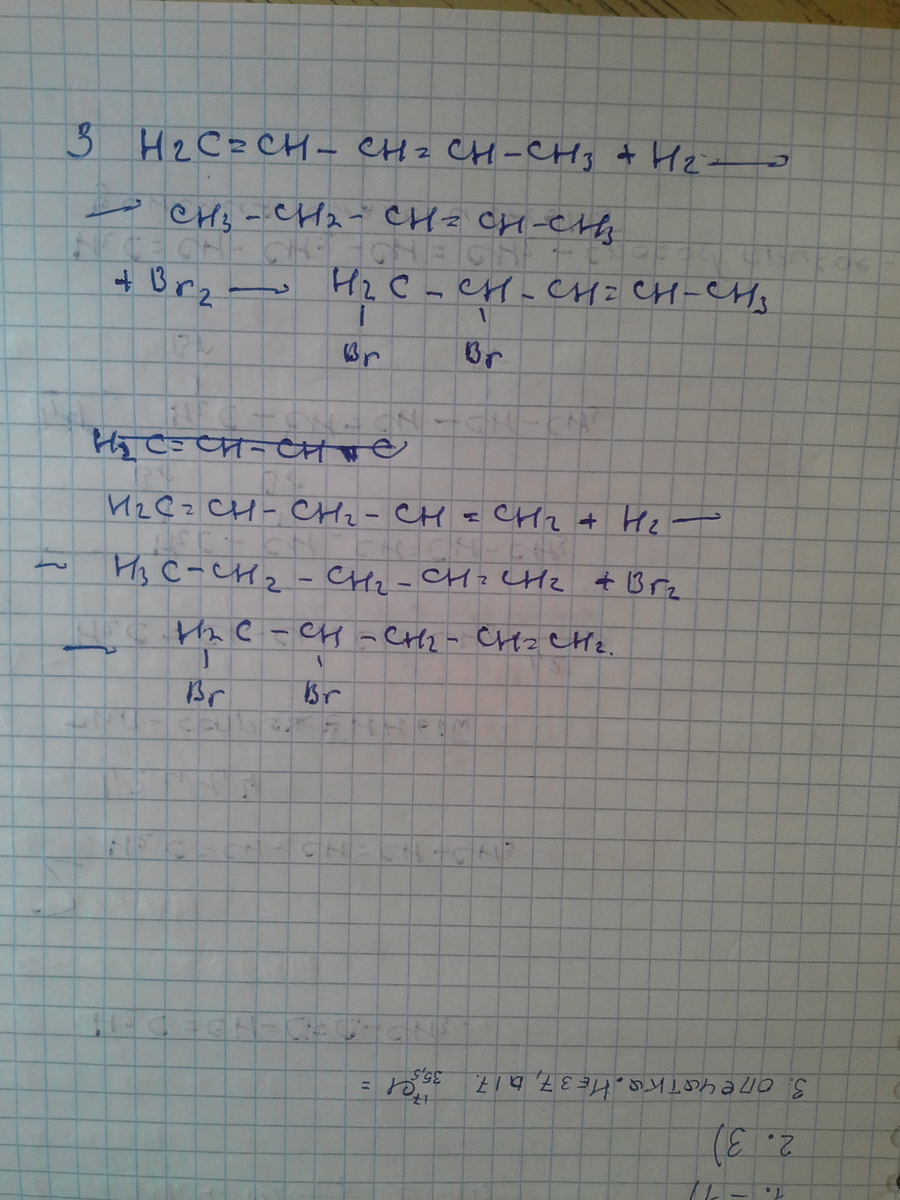 3 H₂C=CH-CH=CH-CH₃ + H₂ ⟶
⟶ CH₃-CH₂-CH=CH-CH₃
+ Br₂ ⟶ H₂C-CH-CH=CH-CH₃
Br Br
H₂C=CH-CH C
H₂C=CH-CH₂-CH=CH₂ + H₂ —
— H₃C-CH₂-CH₂-CH=CH₂ + Br₂
— H₂C-CH-CH₂-CH=CH₂.
Br Br
3. опечатка. Не 37, а 17. ¹⁷Cl 35,5 =
2. 3)